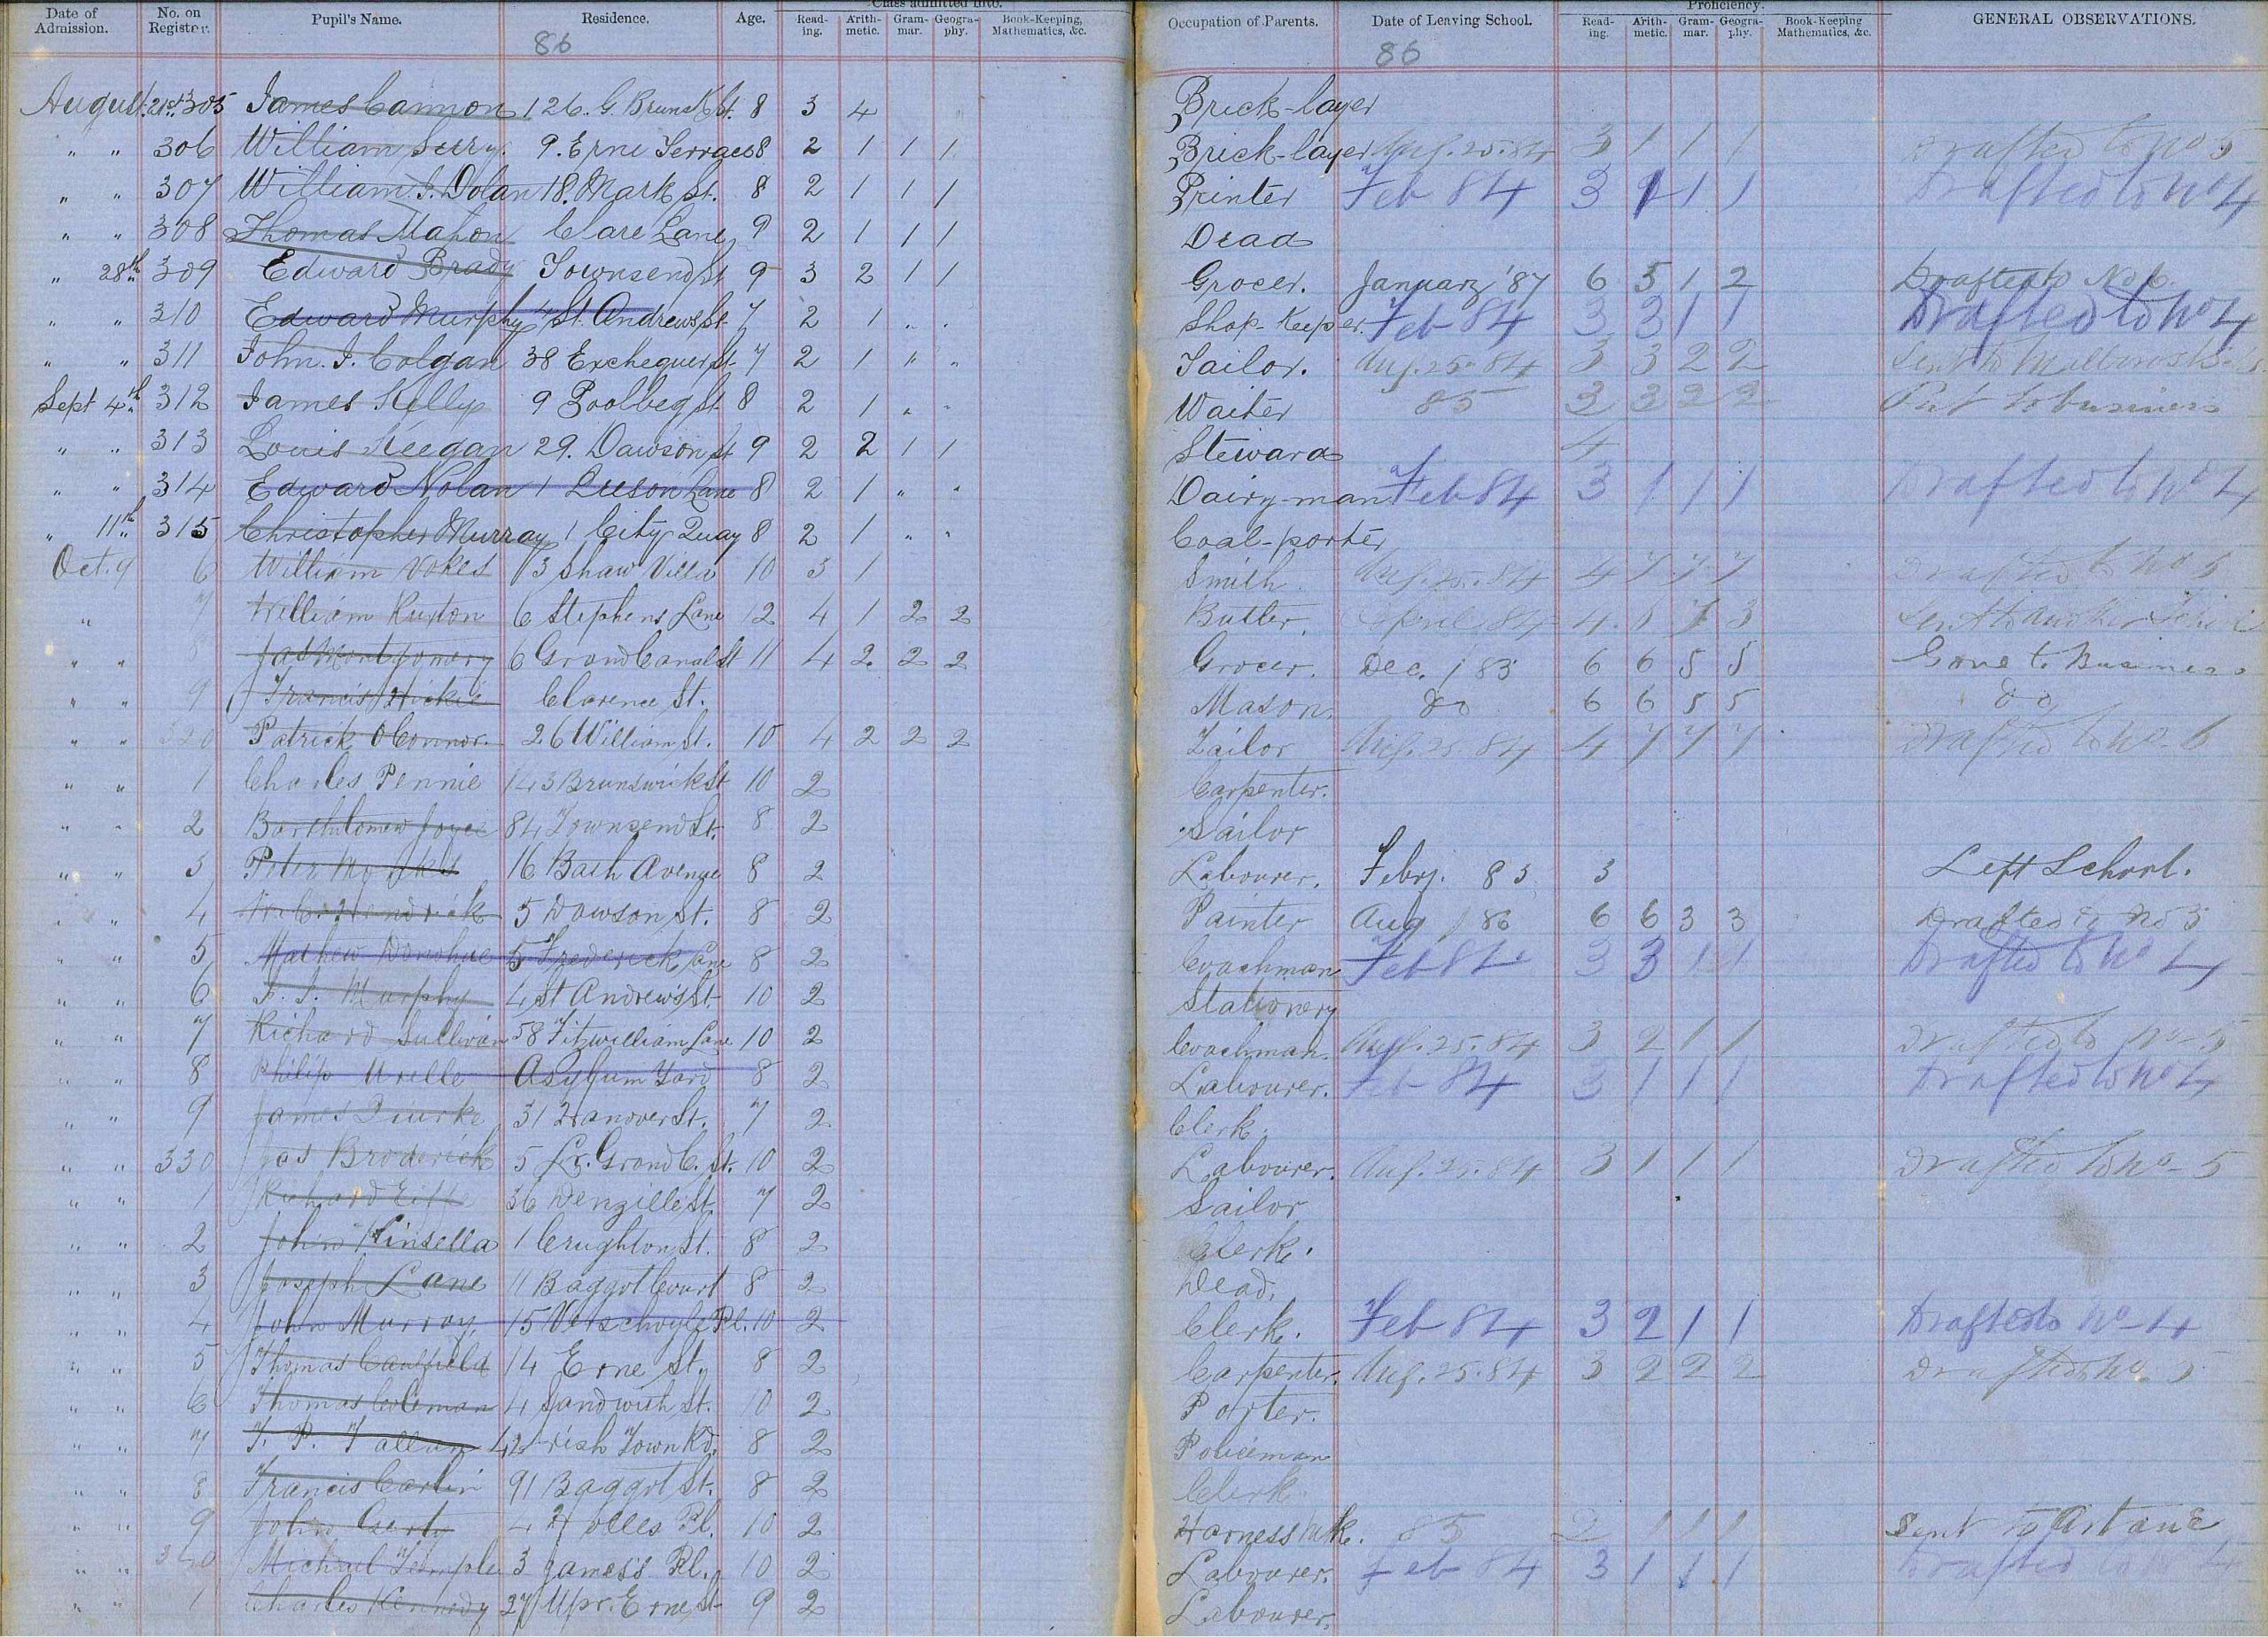 Date of Admission. No. on Register. Pupil's Name. Residence. Age. Class admitted into. Reading. Arithmetic. Grammar. Geography. Book-Keeping, Mathematics, &c. Occupation of Parents. Date of Leaving School. Proficiency. Reading. Arithmetic. Grammar. Geography. Book-Keeping Mathematics, &c. GENERAL OBSERVATIONS.
86 86
August 21st 305 James Cannon 126. G. Bruns K St. 8 3 4 Brick-layer
" " 306 William 9. Erne Terrace 8 2 1 1 1 Brick-layer Aug. 25. 84 3 1 1 1 Drafted to No 5
" " 307 William J. Dolan 18. Mark St. 8 2 1 1 1 Printer Feb 84 3 1 1 1 Drafted to No 4
" " 308 Thomas Mahon Clare Lane 9 2 1 1 1 Dead
" 28th 309 Edward Brady Townsend St 9 3 2 1 1 Grocer. January '87 6 5 1 2 Drafted to No 6.
" " 310 Edward Murphy 4 St. Andrews St. 7 2 1 " " Shop-Keeper. Feb 84 3 3 1 1 Drafted to No 4
" " 311 John. J. Colgan 38 Exchequer St. 7 2 1 " " Tailor. Aug. 25. 84 3 3 2 2 Sent to
Sept 4th 312 James Kelly 9 Poolbeg St. 8 2 1 " " Waiter 85 3 3 2 2 Put to business
" " 313 Louis Keegan 29. Dawson St 9 2 2 1 1 Steward 4
" " 314 Edward Nolan 1 Leeson Lane 8 2 1 " " Dairy-man Feb 84 3 1 1 1 Drafted to No 4
" 11th 315 Christopher Murray 1 City Quay 8 2 1 " " Coal-porter
Oct. 9 6 William Vokes 13 Shaw Villa 10 3 1 Smith Aug. 25. 84 4 7 7 7 Drafted to No 5
" 7 William Ruxton 6 Stephens Lane 12 4 1 2 2 Butler. April 84 4 1 1 3 Sent to another School
" " 8 Jas Montgomery 6 Grand Canal St 11 4 2 2 2 Grocer. Dec. / 83 6 6 5 5 Gone to Business
" " 9 Francis Hickie Clarence St. Mason. do 6 6 5 5 do
" " 320 Patrick O Connor. 26 William St. 10 4 2 2 2 Tailor Aug. 25. 84 4 7 7 7 Drafted to No. 6
" " 1 Charles Pennie 143 Brunswick St 10 2 Carpenter.
" " 2 Bartholomew Joyce 84 Townsend St. 8 2 Sailor
" " 3 Peter 16 Bath Avenue 8 2 Labourer. Feby. 83 3 Left School.
" " 4 5 Dawson St. 8 2 Painter Aug / 86 6 6 3 3 Drafted to No 3
" " 5 Mathew Donohue 5 Frederick Lane 8 2 Coachman Feb 84 3 3 1 1 Drafted to No 4
" " 6 Murphy 4 St Andrew's St 10 2 Stationery
" " 7 Richard Sullivan 58 Fitzwilliam Lane 10 2 Coachman. Aug. 25. 84 3 2 1 1 Drafted to No-5
" " 8 Philip Urelle Asylum Yard 8 2 Labourer. Feb 84 3 1 1 1 Drafted to No 4
" " 9 James Quirke 31 Hanover St. 7 2 Clerk.
" " 330 Jas Broderick 5 Lr. Grand C. St. 10 2 Labourer. Aug. 25. 84 3 1 1 1 Drafted to No-5
" " 1 Richard 36 Denzille St. 7 2 Sailor
" " 2 John Kinsella 1 Crughton St. 8 2 Clerk.
" " 3 Joseph Lane 11 Baggot Court 8 2 Dead.
" " 4 John Murray. 15 Verschoyle Pl. 10 2 Clerk. Feb 84 3 2 1 1 Drafted to No-4
" " 5 Thomas Caulfield 14 Erne St. 8 2 Carpenter. Aug. 25. 84 3 2 2 2 Drafted to No. 5
" " 6 Thomas Coleman 4 Sandwith St. 10 2 Porter.
" " 7 T. P. Fallun 42 Irish Town Rd. 8 2 Policeman
" " 8 Francis Carlin 91 Baggot St. 8 2 Clerk.
" " 9 John 4 Holles Pl. 10 2 Harness Mk. 85 2 1 1 1 Sent to Artane
" " 340 Michael Temple 3 James's Pl. 10 2 Labourer. Feb 84 3 1 1 1 Drafted to No 4
" " 1 Charles Kennedy 27 Upr. Erne St. 9 2 Labourer.